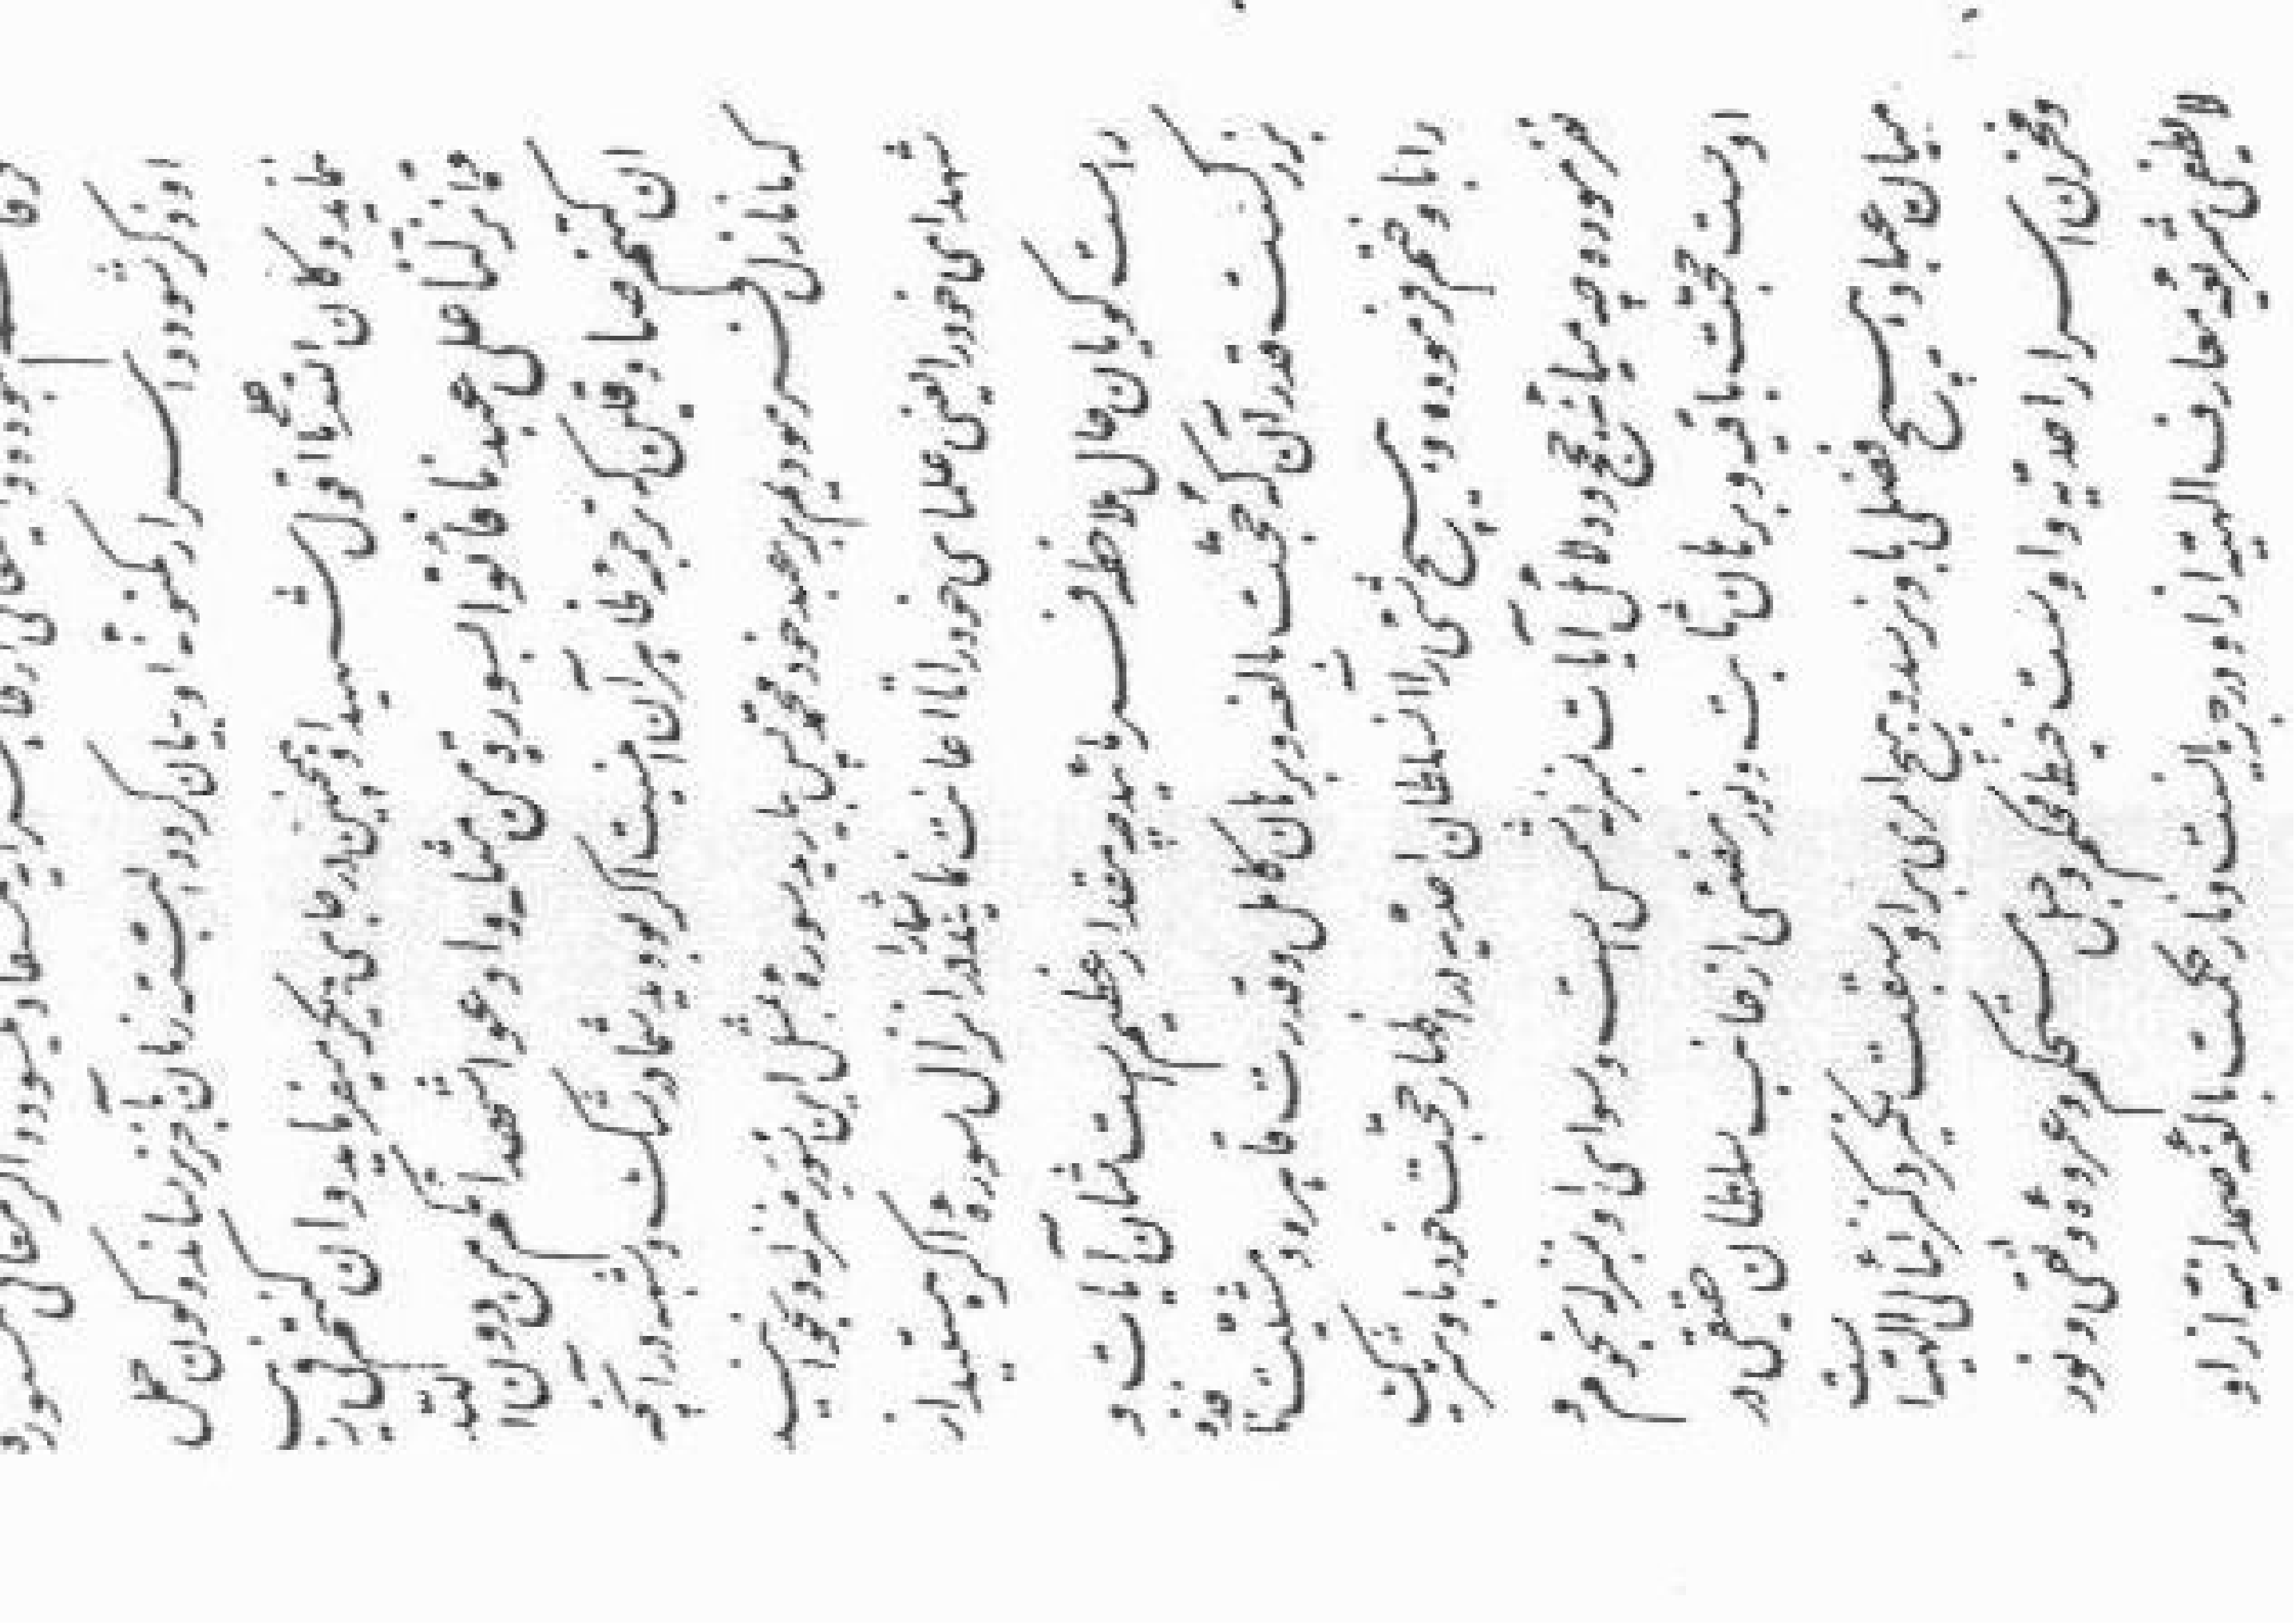 نماید و کان الله علی ما اقول شهید او همچنین در جای دیگر میفرماید و ان کنتم فی ریب
مما نزلنا علی عبدنا فاتوا بسورة من مثله و ادعوا شهداءکم من دون الله
ان کنتم صادقین که ترجمه ظاهر آن اینست اگر بوده‌اید شما در شک و شبهه در آنچه
که ما نازل فرمودیم بر عبد خود محمد پس بیارید سوره بمثل این سور منزله و بخوانید
شهدای خود را یعنی علمای خود را تا اعانت نمایند شما را در انزال سوره اگر هستید از
راست گویان حال ملاحظه فرمائید چه مقدار عظیم است شان آیات و
بزرگست قدر آن که حجت بالغه و برهان کامل و قدرت قاهره و مشیت نافذه
را بآن ختم فرموده و هیچ شیئی را آن سلطان احدیه در اظهار حجت خود باو شریک
نفرموده چه میانه حجج و دلائل آیات بمنزله شمس است و سوای او بمنزله نجوم و
اوست حجت باقیه و برهان ثابت و نور مضیئ از جانب سلطان حقیقی در
میان عباد هیچ فضلی باو نرسد و هیچ امری بر او سبقت نگیرد کنز لئالی الهیه است
و مخزن اسرار احدیه و اوست خیط محکم و حبل مستحکم و عروه وثقی و نور
لا یطفی شریعه معارف الهیه از او در جریانست و نار حکمت بالغه صمدانیه از او